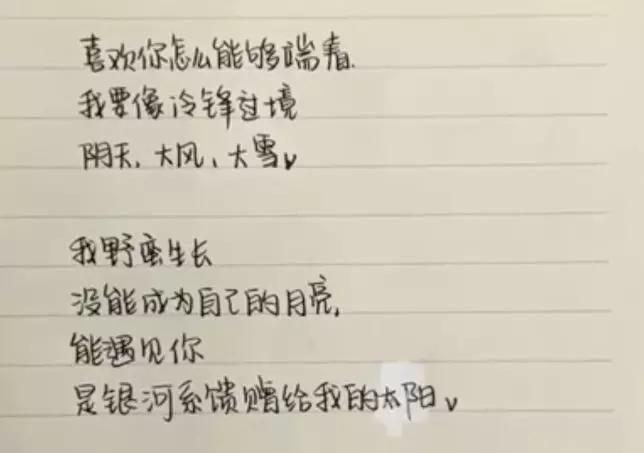 喜欢你怎么能够端着.
我要像冷锋过境
阴天、大风、大雪。
我野蛮生长
没能成为自己的月亮,
能遇见你
是银河系馈赠给我的太阳。